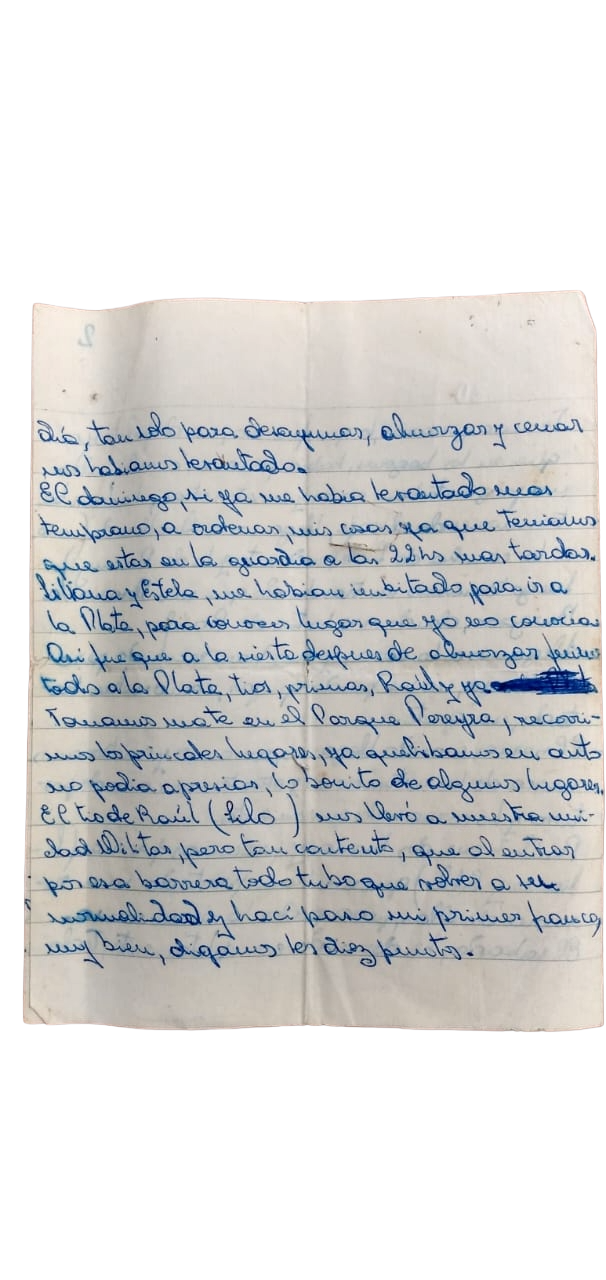 día, tan solo para desayunar, almorzar y cenar
nos habiamos levantado.
El domingo, si ya me habia levantado mas
temprano, a ordenar, mis cosas ya que teniamos
que estar en la guardia a las 22hs mas tardar.
Liliana y Estela, me habian imbitado, para ir a
la Plata, para conocer lugar que yo no conocia
Asi fue que a la siesta despues de almorzar fuimos
todo a la Plata, tios, primas, Raúl y yo
Tomamos mate en el Parque Pereyra, recorri-
mos los princales lugares, ya que ibamos en auto
no podia apresiar, lo bonito de algunos lugares.
El tio de Raúl (Lilo) nos llevó a nuestra uni-
dad Militar, pero tan contento, que al entrar
por esa barrera todo tubo que volver a su
normalidad y haci paso mi primer franco,
muy bien, digamos les diez puntos.